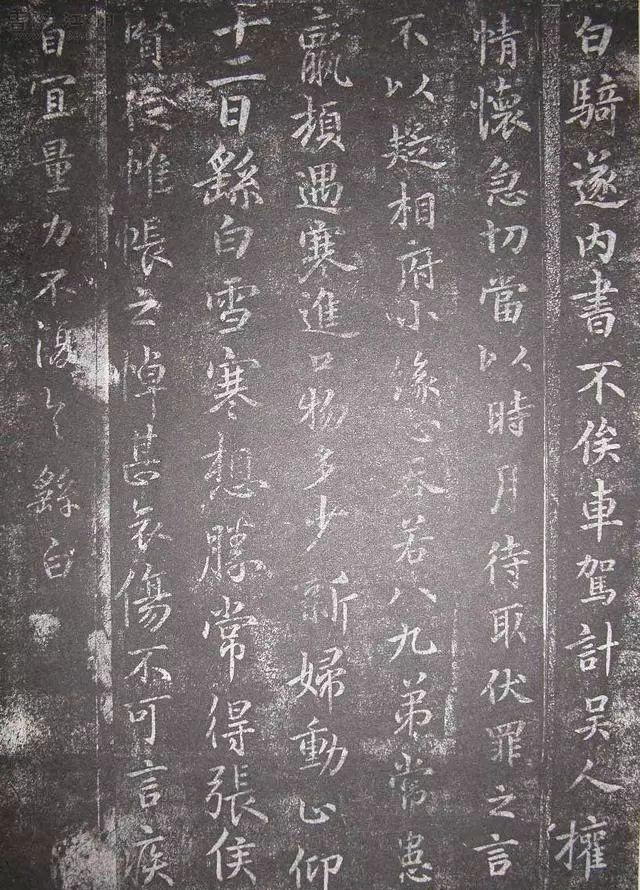 白騎遂内書不俟車駕計吴人權
情懷急切當以時月待取伏罪之言
不以疑相府小緣心吞若八九弟常患
羸頓遇寒進口物多少新婦動止仰
十二日繇白雪寒想勝常得張侯
賢從帷帳之悼甚哀傷不可言疾
自宜量力不復繇白